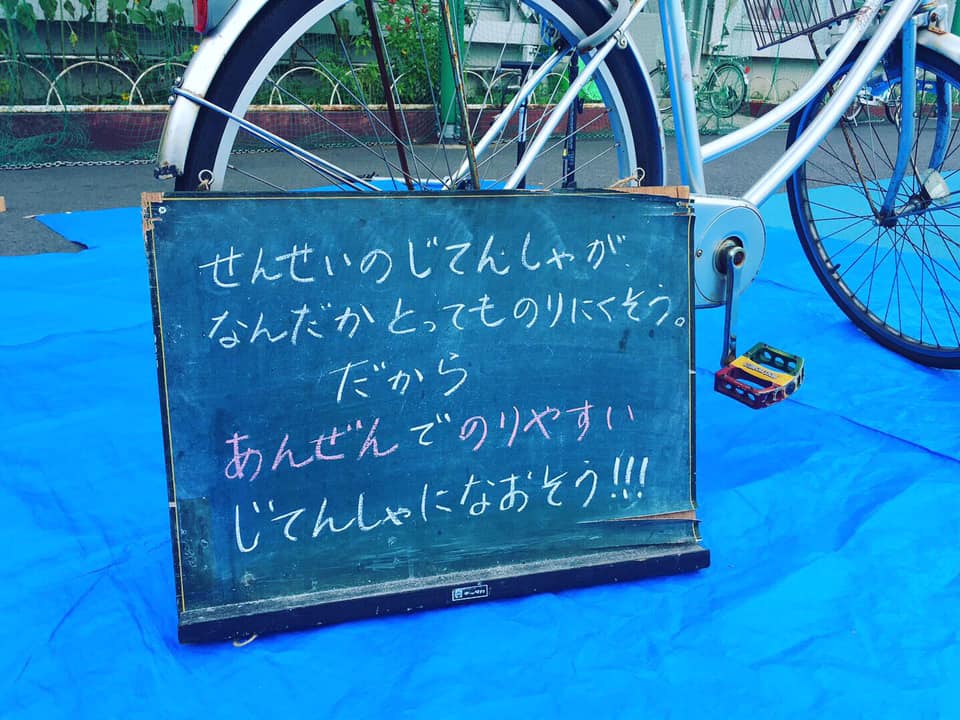 せんせいのじてんしゃが
なんだかとってものりにくそう。
だから
あんぜんでのりやすい
じてんしゃになおそう!!!